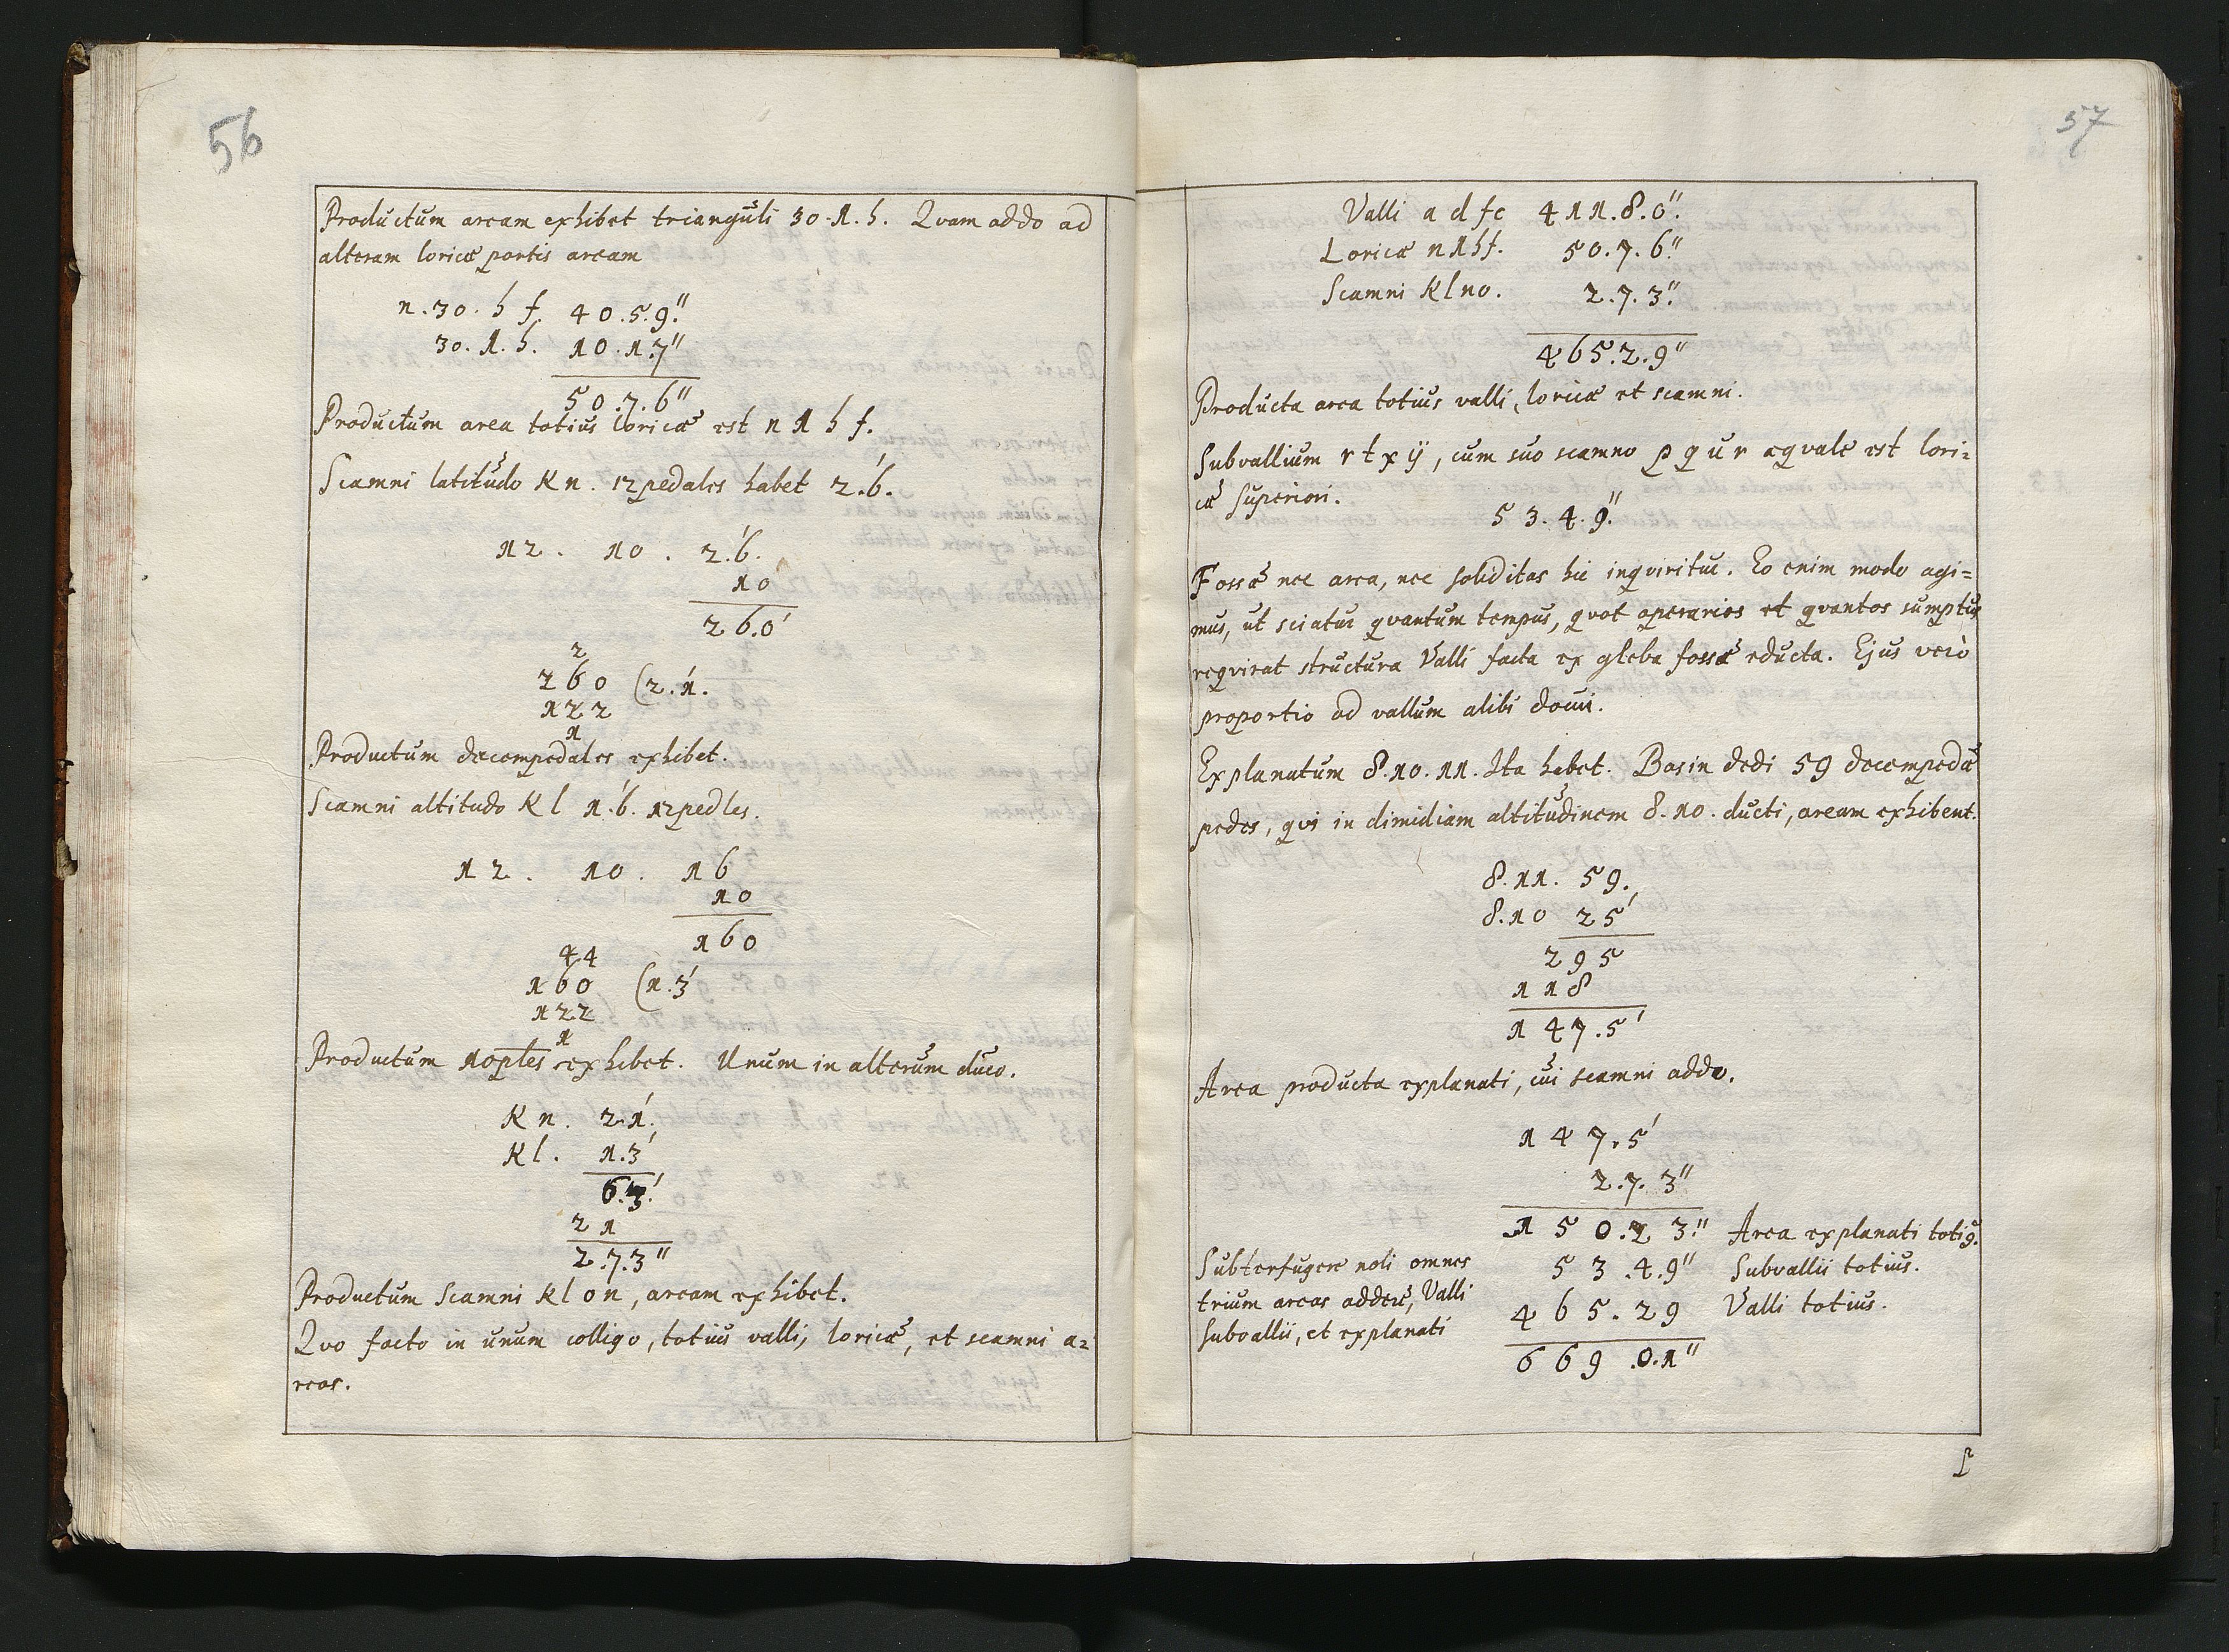 56
Productum aream exhibet trianguli 30.1.h. Qvam addo ad
alteram loricæ partis aream
n.30.h f. 40.5.9."
30.1.h. 10.1.7"
50.7.6"
Productum area totius loricæ est n 1 h f.
Scamni latitudo K n. 12pedales habet 2.6'.
12. 10. 2.6'.
10
26.0'
2
260 (2.1'.
122
1
Productum decempedales exhibet.
Scamni altitudo K l 1.6'. 12pedles.
12. 10. 16
10
160
44
160 (1.3'
122
1
Productum 10ples exhibet. Unum in alterum duco.
K n. 2.1'.
K l. 1.3'
6.3'.
21
2.7.3"
Productum scamni K l o n, aream exhibet.
Qvo facto in unum colligo, totius valli, loricæ, et scamni a=
reas.
57
Valli a d f c 411.8.0".
Loricæ n 1 h f. 50.7.6"
Scamni K l n o. 2.7.3"
465.2.9"
Producta area totius valli, loricæ et scamni.
Subvallium r t x ÿ, cum suo scamno p q u r æqvale est lori=
cæ superiori.
53.4.9"
Fossæ nec area, nec soliditas hic inqviritur. Eo enim modo agi=
mus, ut sciatur qvantum tempus, qvot operarios et qvantos sumptus
reqvirat structura Valli facta ex gleba fossæ educta. Ejus verò
proportio ad vallum alibi docui.
Explanatum 8.10.11. Ita habet. Basin dedi 59 decempedæ
pedes, qvi in dimidiam altitudinem 8.10. ducti, aream exhibent.
8.11. 59.
8.10 25'
295
118
147.5'
Area producta explanati, cui scamni addo.
147.5'
2.7.3"
150.2 3." Area explanati toti9.
Subterfugere noli omnes 53.4.9" Subvallii totius.
trium areas Valli 465.29 Valli totius.
subvallii, et explanati
669.0.1"